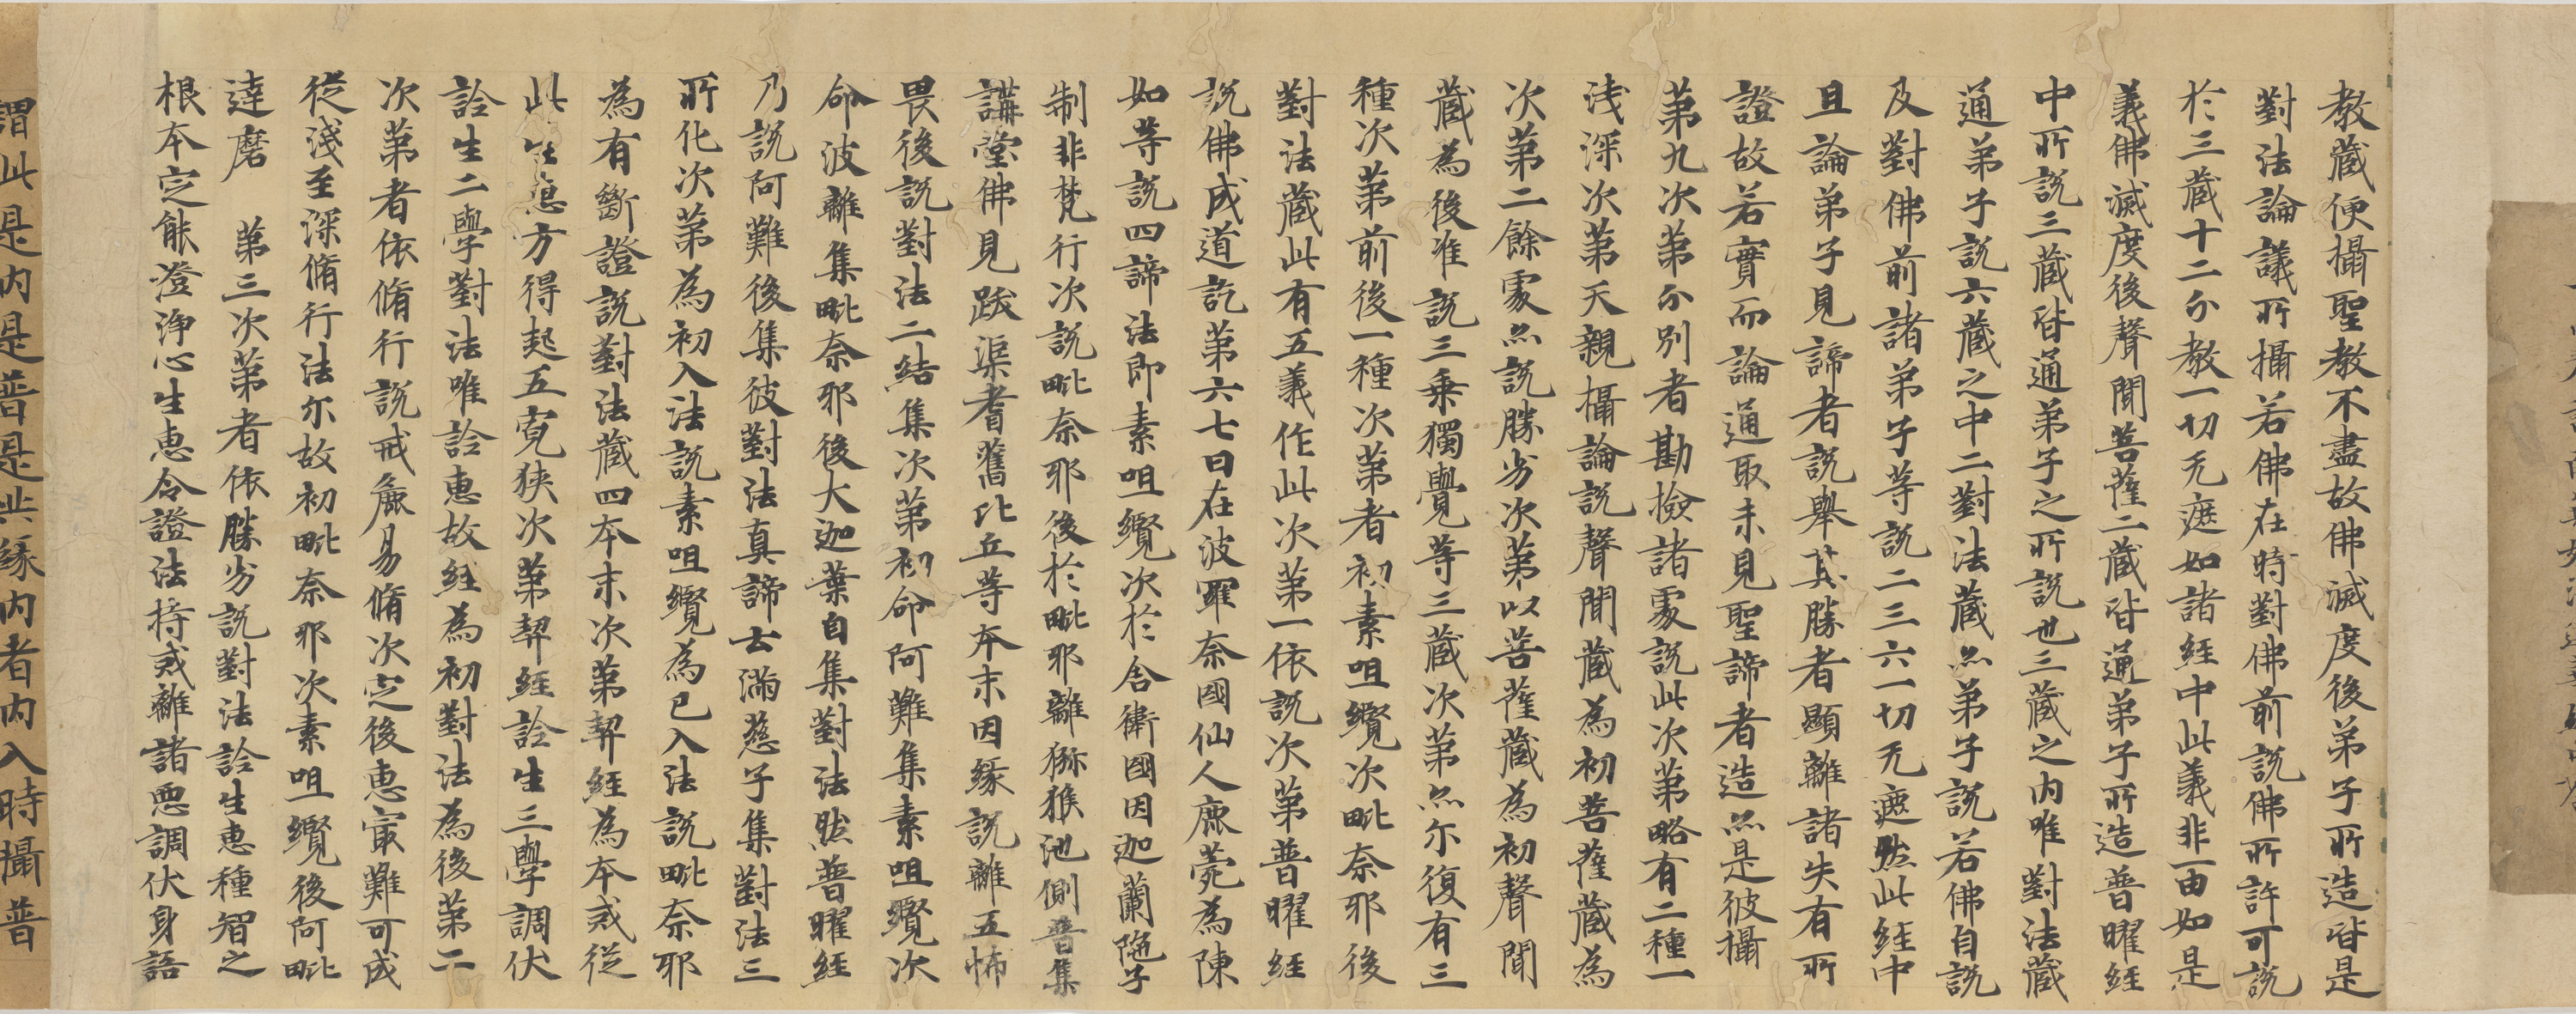 教藏便攝聖教不盡故佛滅度後弟子所造皆是
對法論議所攝若佛在時對佛前說佛所許可說
於三藏十二分教一切无遮如諸經中此義非一由如是
義佛滅度後聲聞菩薩二藏皆通弟子所造普曜經
中所說三藏皆通弟子之所說也三藏之內唯對法藏
通弟子說六藏之中二對法藏亦弟子說若佛自說
及對佛前諸弟子等說二三六一切无遮然此經中
且論弟子見諦者說舉其勝者顯離諸失有所
證故若實而論通取未見聖諦者造亦是彼攝
第九次第分別者勘撿諸處說此次第略有二種一
淺深次第天親攝論說聲聞藏為初菩薩藏為
次第二餘處亦說勝劣次第以菩薩藏為初聲聞
藏為後准說三乘獨覺等三藏次第亦尔復有三
種次第前後一種次第者初素呾纜次毗奈耶後
對法藏此有五義作此次第一依說次第普曜經
說佛成道訖第六七日在波羅奈國仙人鹿菀為陳
如等說四諦法即素呾纜次於舍衛國因迦蘭陁子
制非梵行次說毗奈耶後於毗耶離獼猴池側普集
講堂佛見跋渠耆舊比丘等本末因緣說離五怖
畏後說對法二結集次第初命阿難集素呾纜次
命波離集毗奈耶後大迦葉自集對法然普曜經
乃說阿難後集彼對法真諦云滿慈子集對法三
所化次第為初入法說素呾纜為已入法說毗奈耶
為有斷證說對法藏四本末次第契經為本或從
此生惠方得起五寬狹次第契經詮生三學調伏
詮生二學對法唯詮惠故經為初對法為後第二
次第者依脩行說戒麁易脩次定後惠㝡難可成
從淺至深脩行法尔故初毗奈耶次素呾纜後阿毗
達磨　第三次第者依勝劣說對法詮生惠種智之
根本定能澄淨心生惠令證法持戒離諸惡調伏身語
謂此是內是普是共緣內者內入時攝普